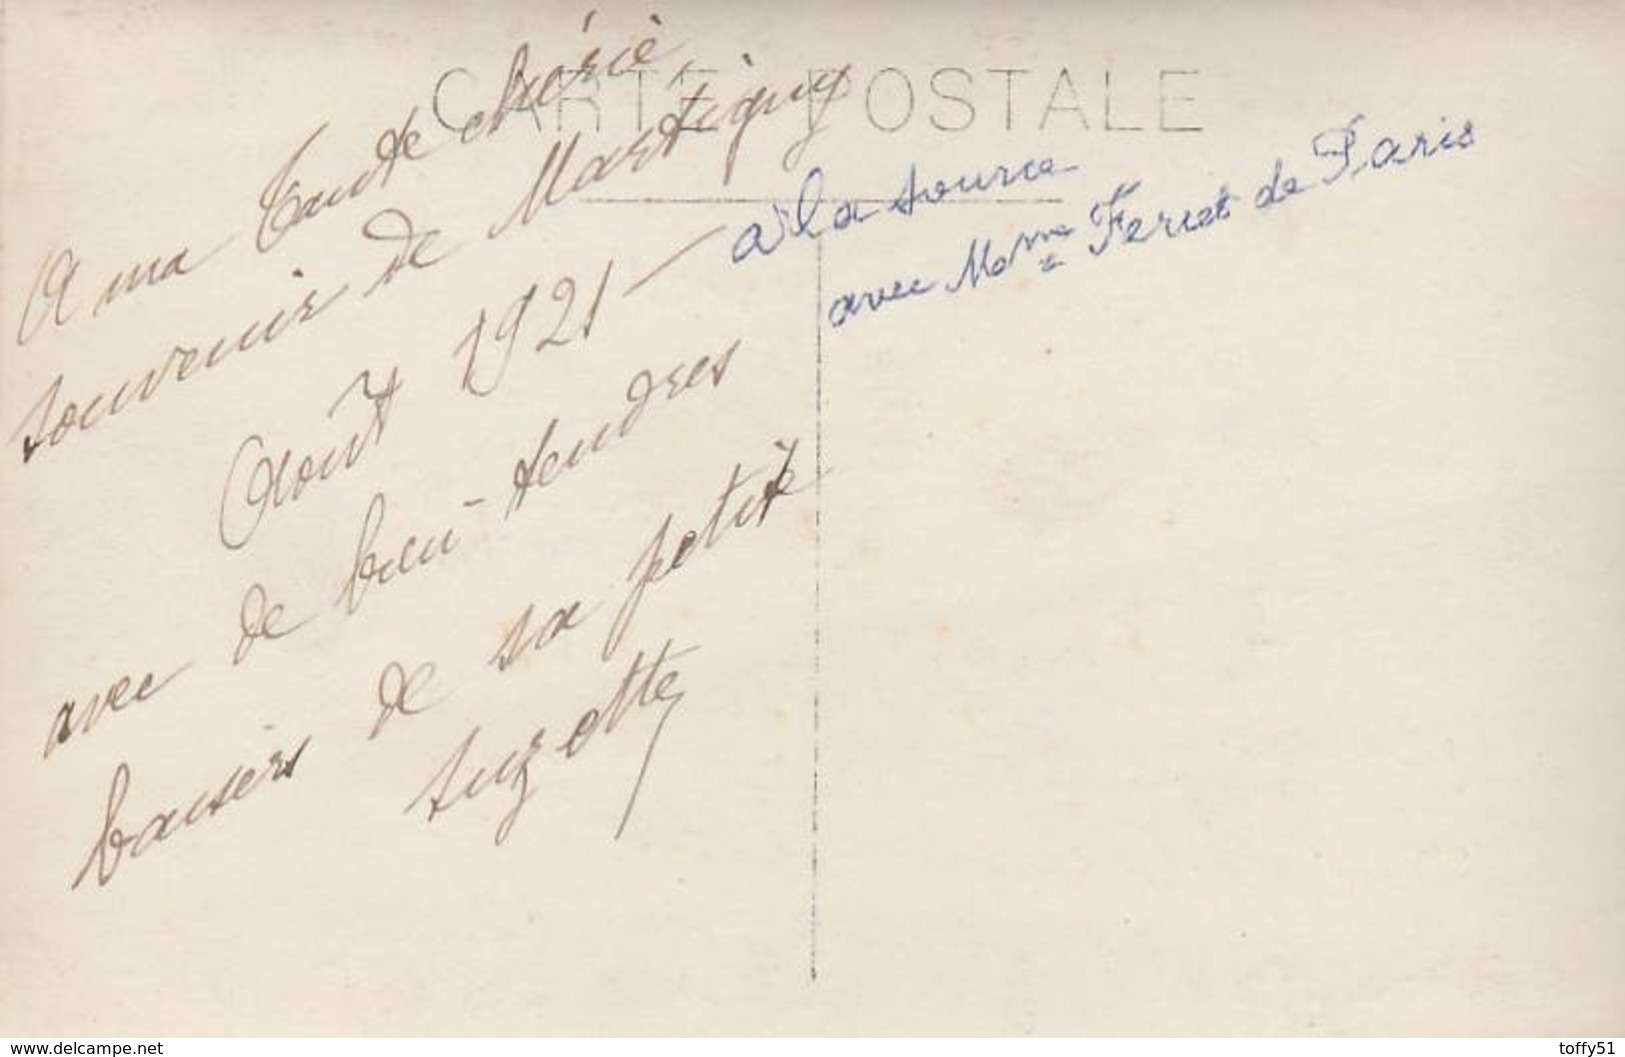 CARTE POSTALE
A ma Tante chérie,
souvenir de Martigny
Août 1921 — à la source
avec Mme Ferret de Paris
avec de bien tendres
baisers de sa petite
Suzette
www.delcampe.net
toffy51